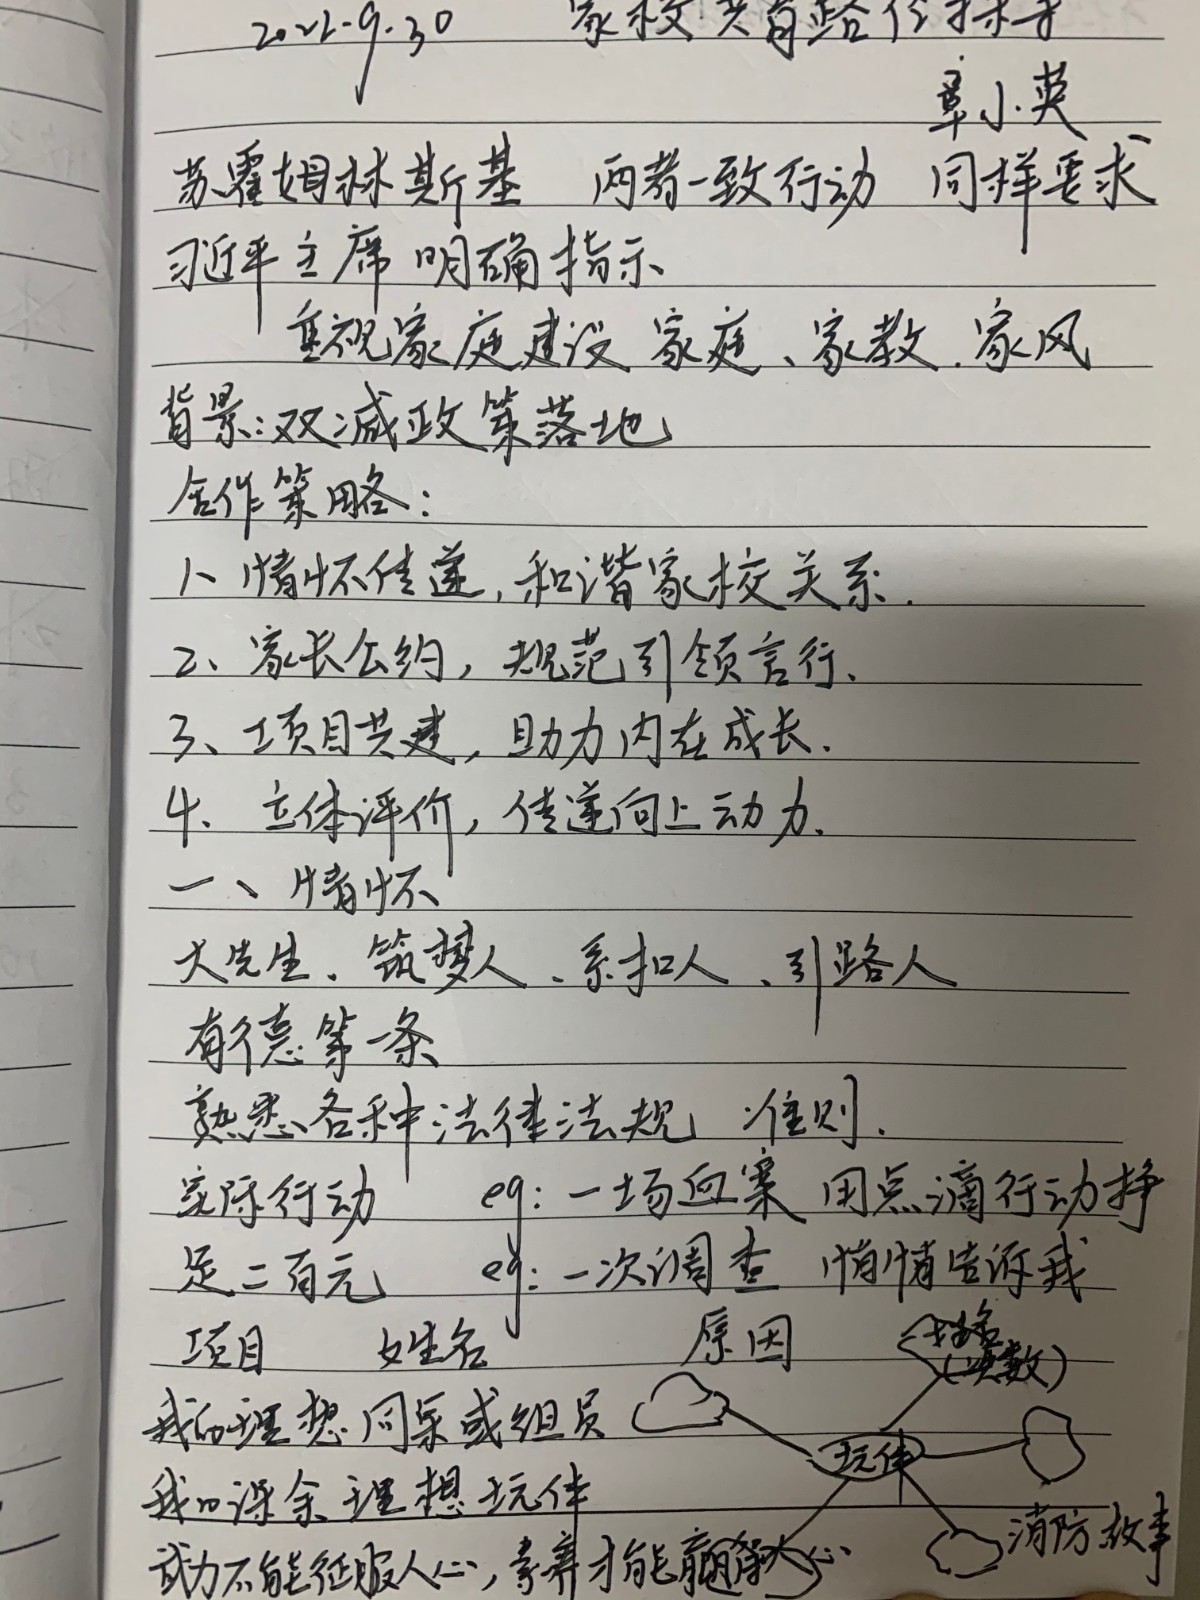 2022.9.30 家校共育路径探寻
章小英
苏霍姆林斯基 两者一致行动 同样要求
习近平主席明确指示
重视家庭建设 家庭、家教、家风
背景:双减政策落地
合作策略:
1、情怀传递,和谐家校关系.
2、家长公约,规范引领言行.
3、项目共建,助力内在成长.
4、立体评价,传递向上动力.
一、情怀
大先生、筑梦人、系扣人、引路人
有德第一条
熟悉各种法律法规 准则.
实际行动 eg:一场血案 用点滴行动挣
足二百元 eg:一次调查 悄悄告诉我
项目 姓名 原因
(次数)
我的理想同桌或组员
玩伴
我的课余理想玩伴
消防故事
武力不能征服人心,素养才能赢得人心